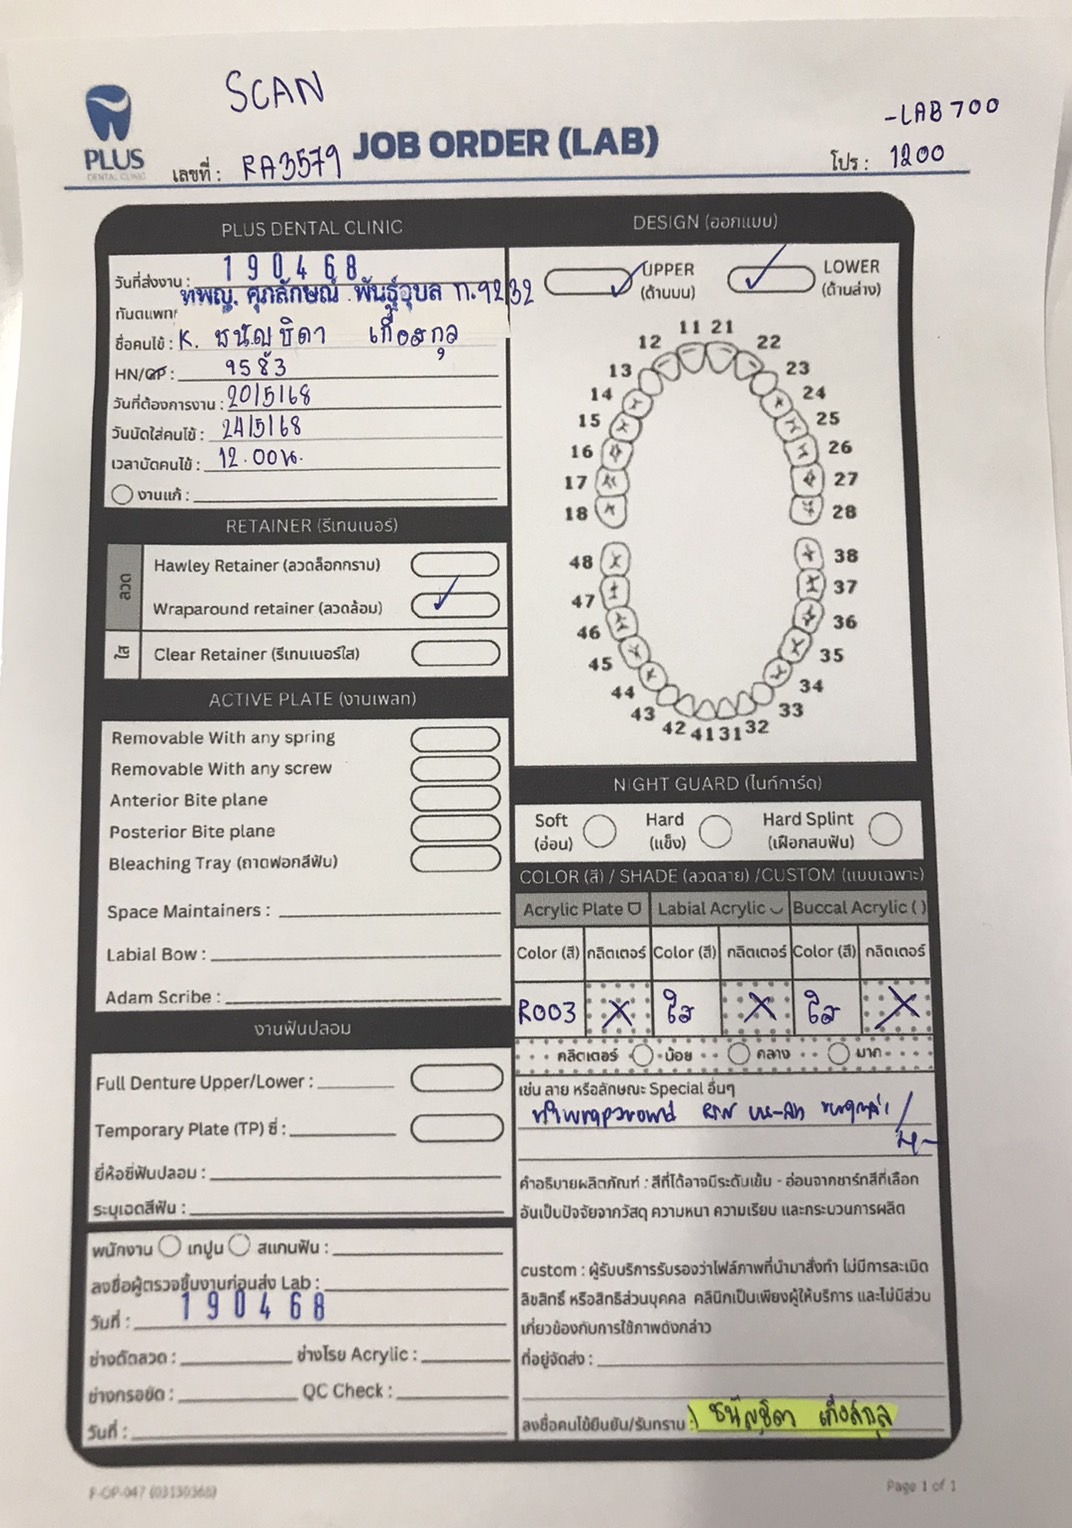 SCAN
-LAB 700
PLUS
DENTAL CLINIC
JOB ORDER (LAB)
เลขที่ : RA3579
โปร : 1200
PLUS DENTAL CLINIC
วันที่ส่งงาน : 190468
ทพญ. ศุภลักษณ์ พันธุ์อุบล ท.9232
ชื่อคนไข้ : K. ชนัญธิดา เกื้อสกุล
HN/CP : 9583
วันที่ต้องการงาน : 20/5/68
วันนัดใส่คนไข้ : 24/5/68
เวลานัดคนไข้ : 12.00 น.
งานแก้ :
RETAINER (รีเทนเนอร์)
ลวด
Hawley Retainer (ลวดล็อกกราม)
Wraparound retainer (ลวดล้อม)
ใส
Clear Retainer (รีเทนเนอร์ใส)
ACTIVE PLATE (งานเพลท)
Removable With any spring
Removable With any screw
Anterior Bite plane
Posterior Bite plane
Bleaching Tray (ถาดฟอกสีฟัน)
Space Maintainers :
Labial Bow :
Adam Scribe :
งานฟันปลอม
Full Denture Upper/Lower :
Temporary Plate (TP) ซี่ :
ยี่ห้อซี่ฟันปลอม :
ระบุเฉดสีฟัน :
พนักงาน เทปูน สแกนฟัน :
ลงชื่อผู้ตรวจชิ้นงานก่อนส่ง Lab :
วันที่ : 190468
ช่างดัดลวด : ช่างโรย Acrylic :
ช่างกรอขัด : QC Check :
วันที่ :
DESIGN (ออกแบบ)
UPPER (ด้านบน)
LOWER (ด้านล่าง)
11 21
12 22
13 23
14 24
15 25
16 26
17 27
18 28
48 38
47 37
46 36
45 35
44 34
43 33
42 41 31 32
NIGHT GUARD (ไนท์การ์ด)
Soft (อ่อน)
Hard (แข็ง)
Hard Splint (เฝือกสบฟัน)
COLOR (สี) / SHADE (ลวดลาย) /CUSTOM (แบบเฉพาะ)
Acrylic Plate Labial Acrylic Buccal Acrylic ( )
Color (สี) กลิตเตอร์ Color (สี) กลิตเตอร์ Color (สี) กลิตเตอร์
R003 X ใส X ใส X
กลิตเตอร์ น้อย กลาง มาก
เช่น ลาย หรือลักษณะ Special อื่นๆ
ทำ wraparound
คำอธิบายผลิตภัณฑ์ : สีที่ได้อาจมีระดับเข้ม - อ่อนจากชาร์ทสีที่เลือก
อันเป็นปัจจัยจากวัสดุ ความหนา ความเรียบ และกระบวนการผลิต
custom : ผู้รับบริการรับรองว่าไฟล์ภาพที่นำมาสั่งทำ ไม่มีการละเมิด
ลิขสิทธิ์ หรือสิทธิส่วนบุคคล คลินิกเป็นเพียงผู้ให้บริการ และไม่มีส่วน
เกี่ยวข้องกับการใช้ภาพดังกล่าว
ที่อยู่จัดส่ง :
ลงชื่อคนไข้ยืนยัน/รับทราบ : ชนัญธิดา เกื้อสกุล
F-OP-047 (03130368)
Page 1 of 1